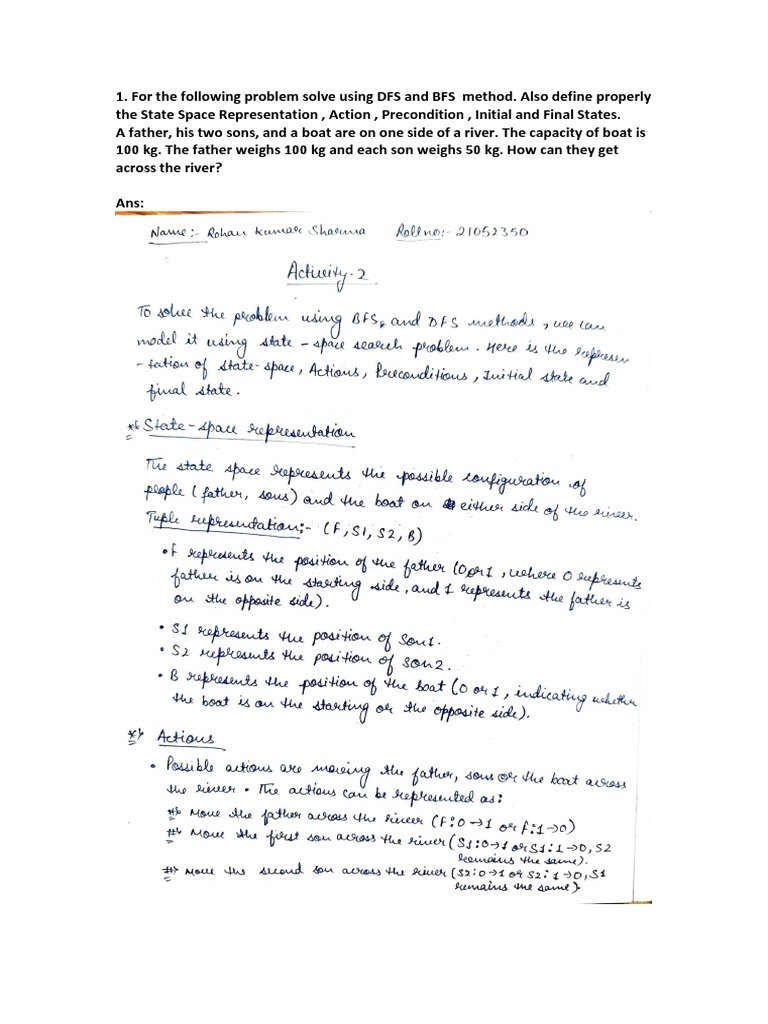 1. For the following problem solve using DFS and BFS method. Also define properly
the State Space Representation , Action , Precondition , Initial and Final States.
A father, his two sons, and a boat are on one side of a river. The capacity of boat is
100 kg. The father weighs 100 kg and each son weighs 50 kg. How can they get
across the river?
Ans:
Name:- Rohan Kumar Sharma Rollno:- 21052350
Activity-2
To solve the problem using BFS, and DFS methods, we can
model it using state-space search problem. Here is the represen
-tation of state-space, Actions, Preconditions, Initial state and
final state.
State-space representation
The state space represents the possible configuration of
people (father, sons) and the boat on either side of the river.
Tuple representation:- (F, S1, S2, B)
• F represents the position of the father (0 or 1, where 0 represents
father is on the starting side, and 1 represents the father is
on the opposite side).
• S1 represents the position of Son1.
• S2 represents the position of Son2.
• B represents the position of the boat (0 or 1, indicating whether
the boat is on the starting or the opposite side).
Actions
• Possible actions are moving the father, sons or the boat across
the river. The actions can be represented as:
Move the father across the river (F:0→1 or F:1→0)
Move the first son across the river (S1:0→1 or S1:1→0, S2
remains the same).
Move the second son across the river (S2:0→1 or S2:1→0, S1
remains the same)